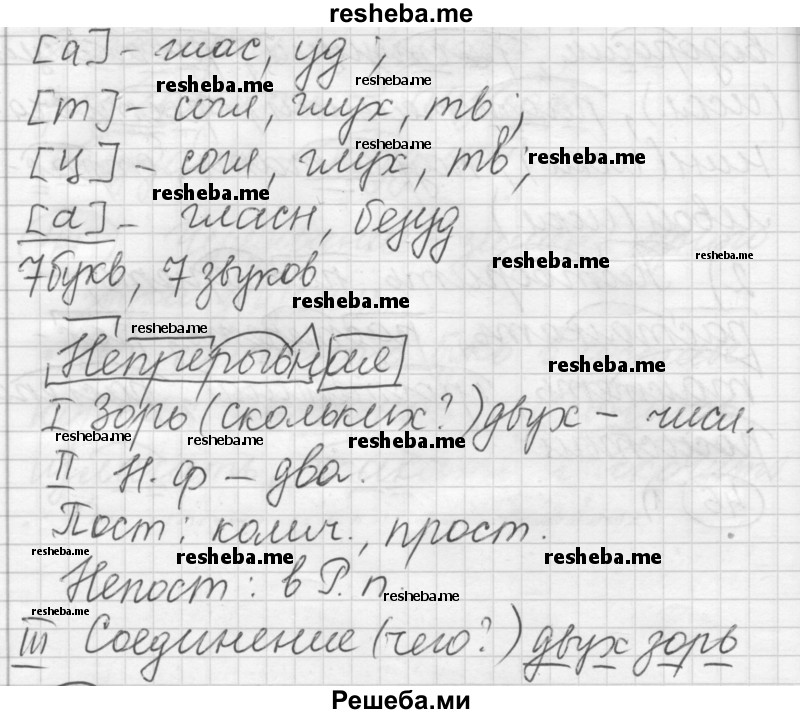 resheba.me
[а] - глас, уд;
resheba.me resheba.me
[т] - согл, глух, тв;
resheba.me
[ц] - согл, глух, тв; resheba.me
resheba.me
[а] - гласн, безуд
resheba.me resheba.me
7 букв, 7 звуков
resheba.me
resheba.me
Непрерывная resheba.me
I Зорь (скольких?) двух - числ.
resheba.me resheba.me resheba.me
II Н.ф - два.
Пост: колич., прост.
resheba.me resheba.me resheba.me
Непост: в Р.п. resheba.me
resheba.me
III Соединение (чего?) двух зорь
Решеба.ми